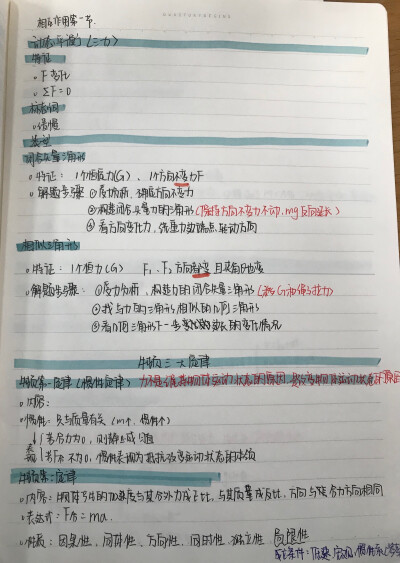 相互作用第一节.
动态平衡(三力)
特征
F变化
ΣF=0
标志词
缓慢
类型
闭合矢量三角形
特征: 1个恒力(G)、1个方向不变力F
解题步骤 ①受力分析,确定方向不变力
②构造闭合矢量力的三角形(保持方向不变力不动,mg反向延长)
③看方向变化力,依重力端点,转动方向
相似三角形
特征: 1个恒力(G) F₁、F₂方向都变且夹角也变
解题步骤: ①受力分析,构造力的闭合矢量三角形
②找与力的三角形相似的几何三角形
③看几何三角形下一步边长的变化情况
牛顿三大定律
牛顿第一定律(惯性定律) 力不是维持物体运动状态的原因,
内容:
惯性: 只与质量有关(m↑,惯性↑)
若合力为0,则静止或匀直
若F不为0,惯性表现为抵抗改变运动状态的本领
牛顿第二定律
内容:物体的加速度与其合外力成正比,与其质量成反比,方向与合力方向相同
表达式:F合=ma.
性质: 因果性、同体性、方向性、同时性、独立性 局限性
成立条件:低速、宏观、惯性系